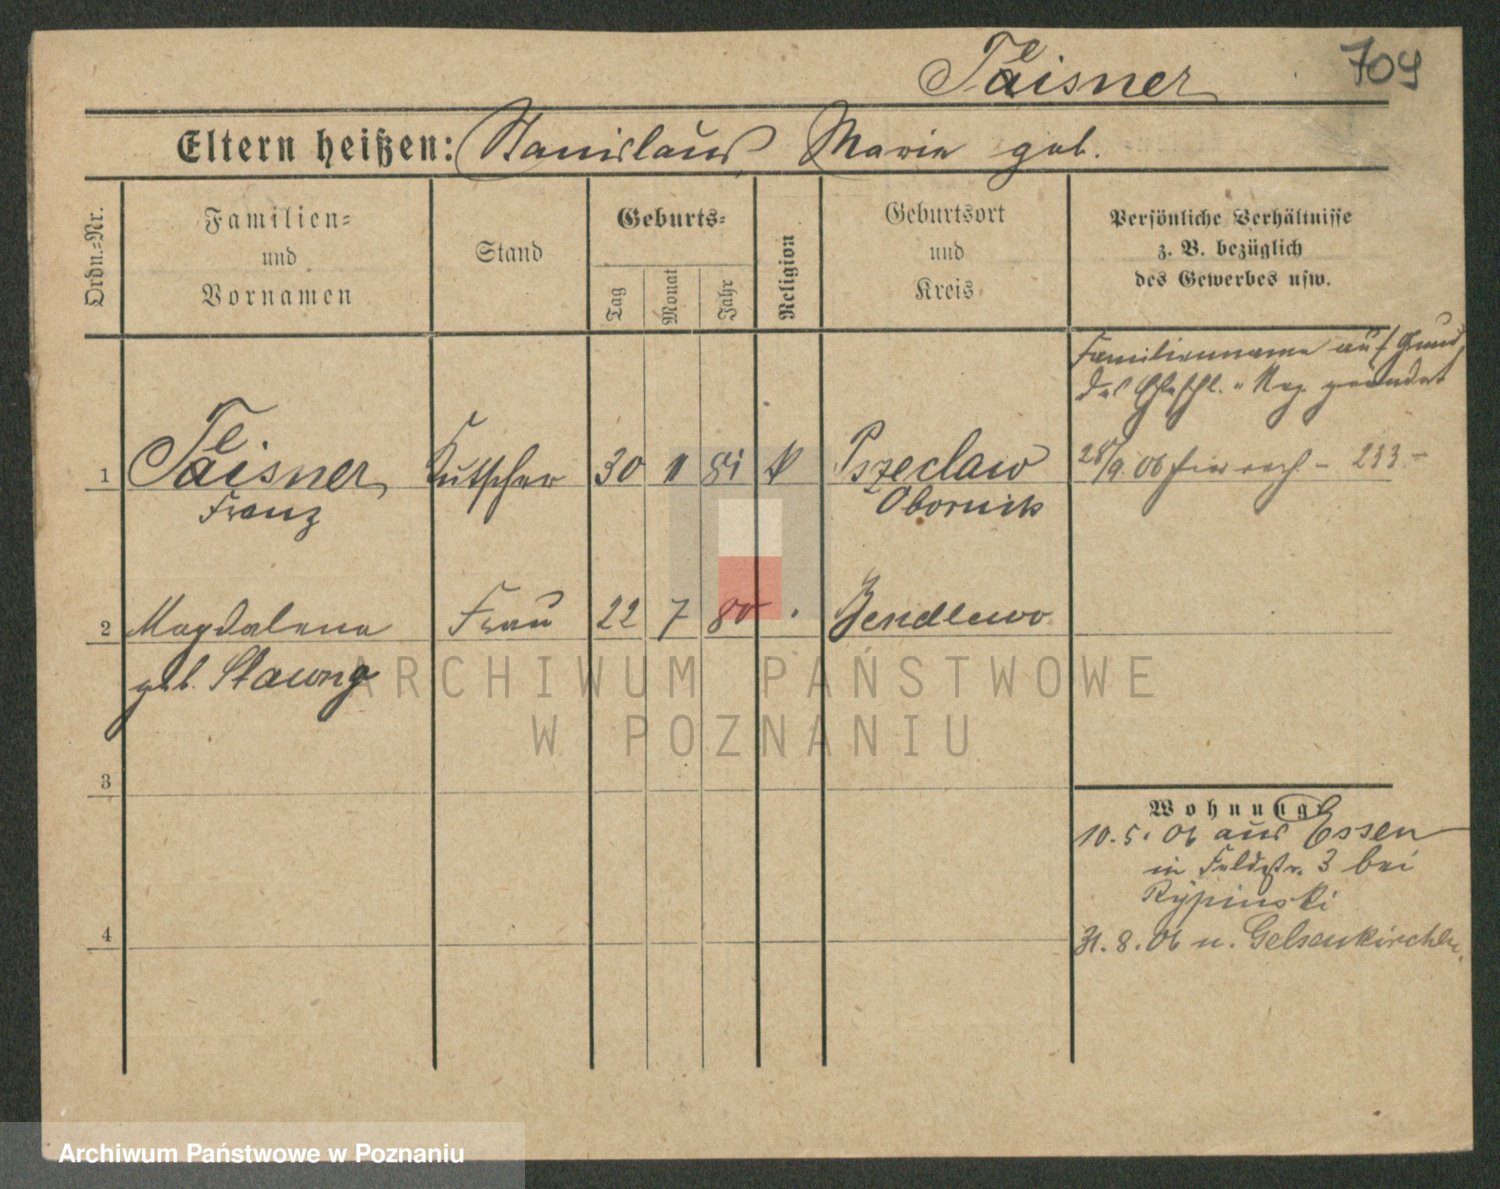 Taisner
e
709
Eltern heißen: Stanislaus Marie geb.
Ordn.-Nr.
Familien- und Vornamen
Stand
Geburts-
Tag
Monat
Jahr
Religion
Geburtsort und Kreis
Persönliche Verhältnisse
z. B. bezüglich
des Gewerbes usw.
Familienname auf Grund
des geändert
28/9.06 233.-
e
1 Taisner Kutscher 30 11 81 k Pszeclaw
Franz Obornik
2 Magdalena Frau 22 7 80 Bendlewo
geb. Stawny
ARCHIWUM PAŃSTWOWE
W POZNANIU
3
Wohnung
10.5.06 aus Essen
in Feldstr. 3 bei
Rypinski
4
31.8.06 n. Gelsenkirchen.
Archiwum Państwowe w Poznaniu